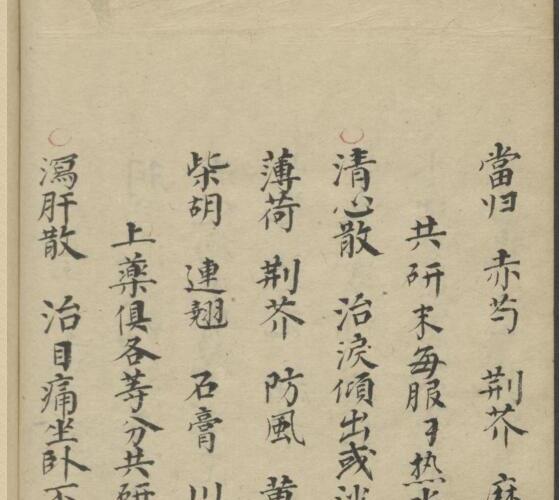 當归 赤芍 荆芥 麻
共研末每服 热
清心散 治淚傾出或
薄荷 荆芥 防風 黄
柴胡 連翘 石膏 川
上藥俱各等分共研
瀉肝散 治目痛坐卧不